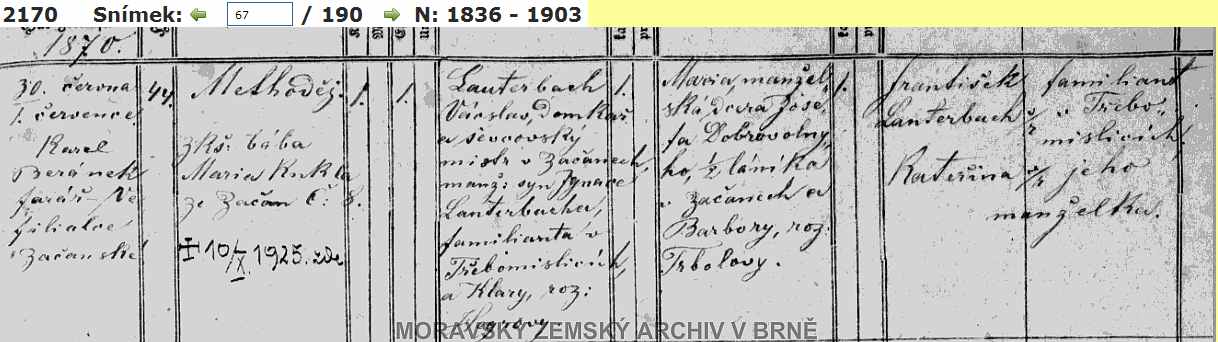 2170 Snímek: 67 / 190 N: 1836 - 1903
1870.
30. června
1. července
Karel
Beránek
farář
filialce
Začanské
44.
Methoděj.
zkš: bába
Maria Kukla
ze Začan Č: 8.
+ 10/X. 1925. zde
1.
1.
Lauterbach
Václav, domkař
a ševcovský
mistr v Začanech,
manž: syn Ignace
Lauterbacha,
familianta v
Třebomislicích,
a Klary, roz:
1.
Maria, manžel
ská dcera Jose
fa Dobrovolny
ho, ½ láníka
v Začanech a
Barbory, roz:
Trbolovy.
1.
František
Lauterbach
familiant
v Třebo
mislicích,
Kateřina
jeho
manželka.
MORAVSKÝ ZEMSKÝ ARCHIV V BRNĚ